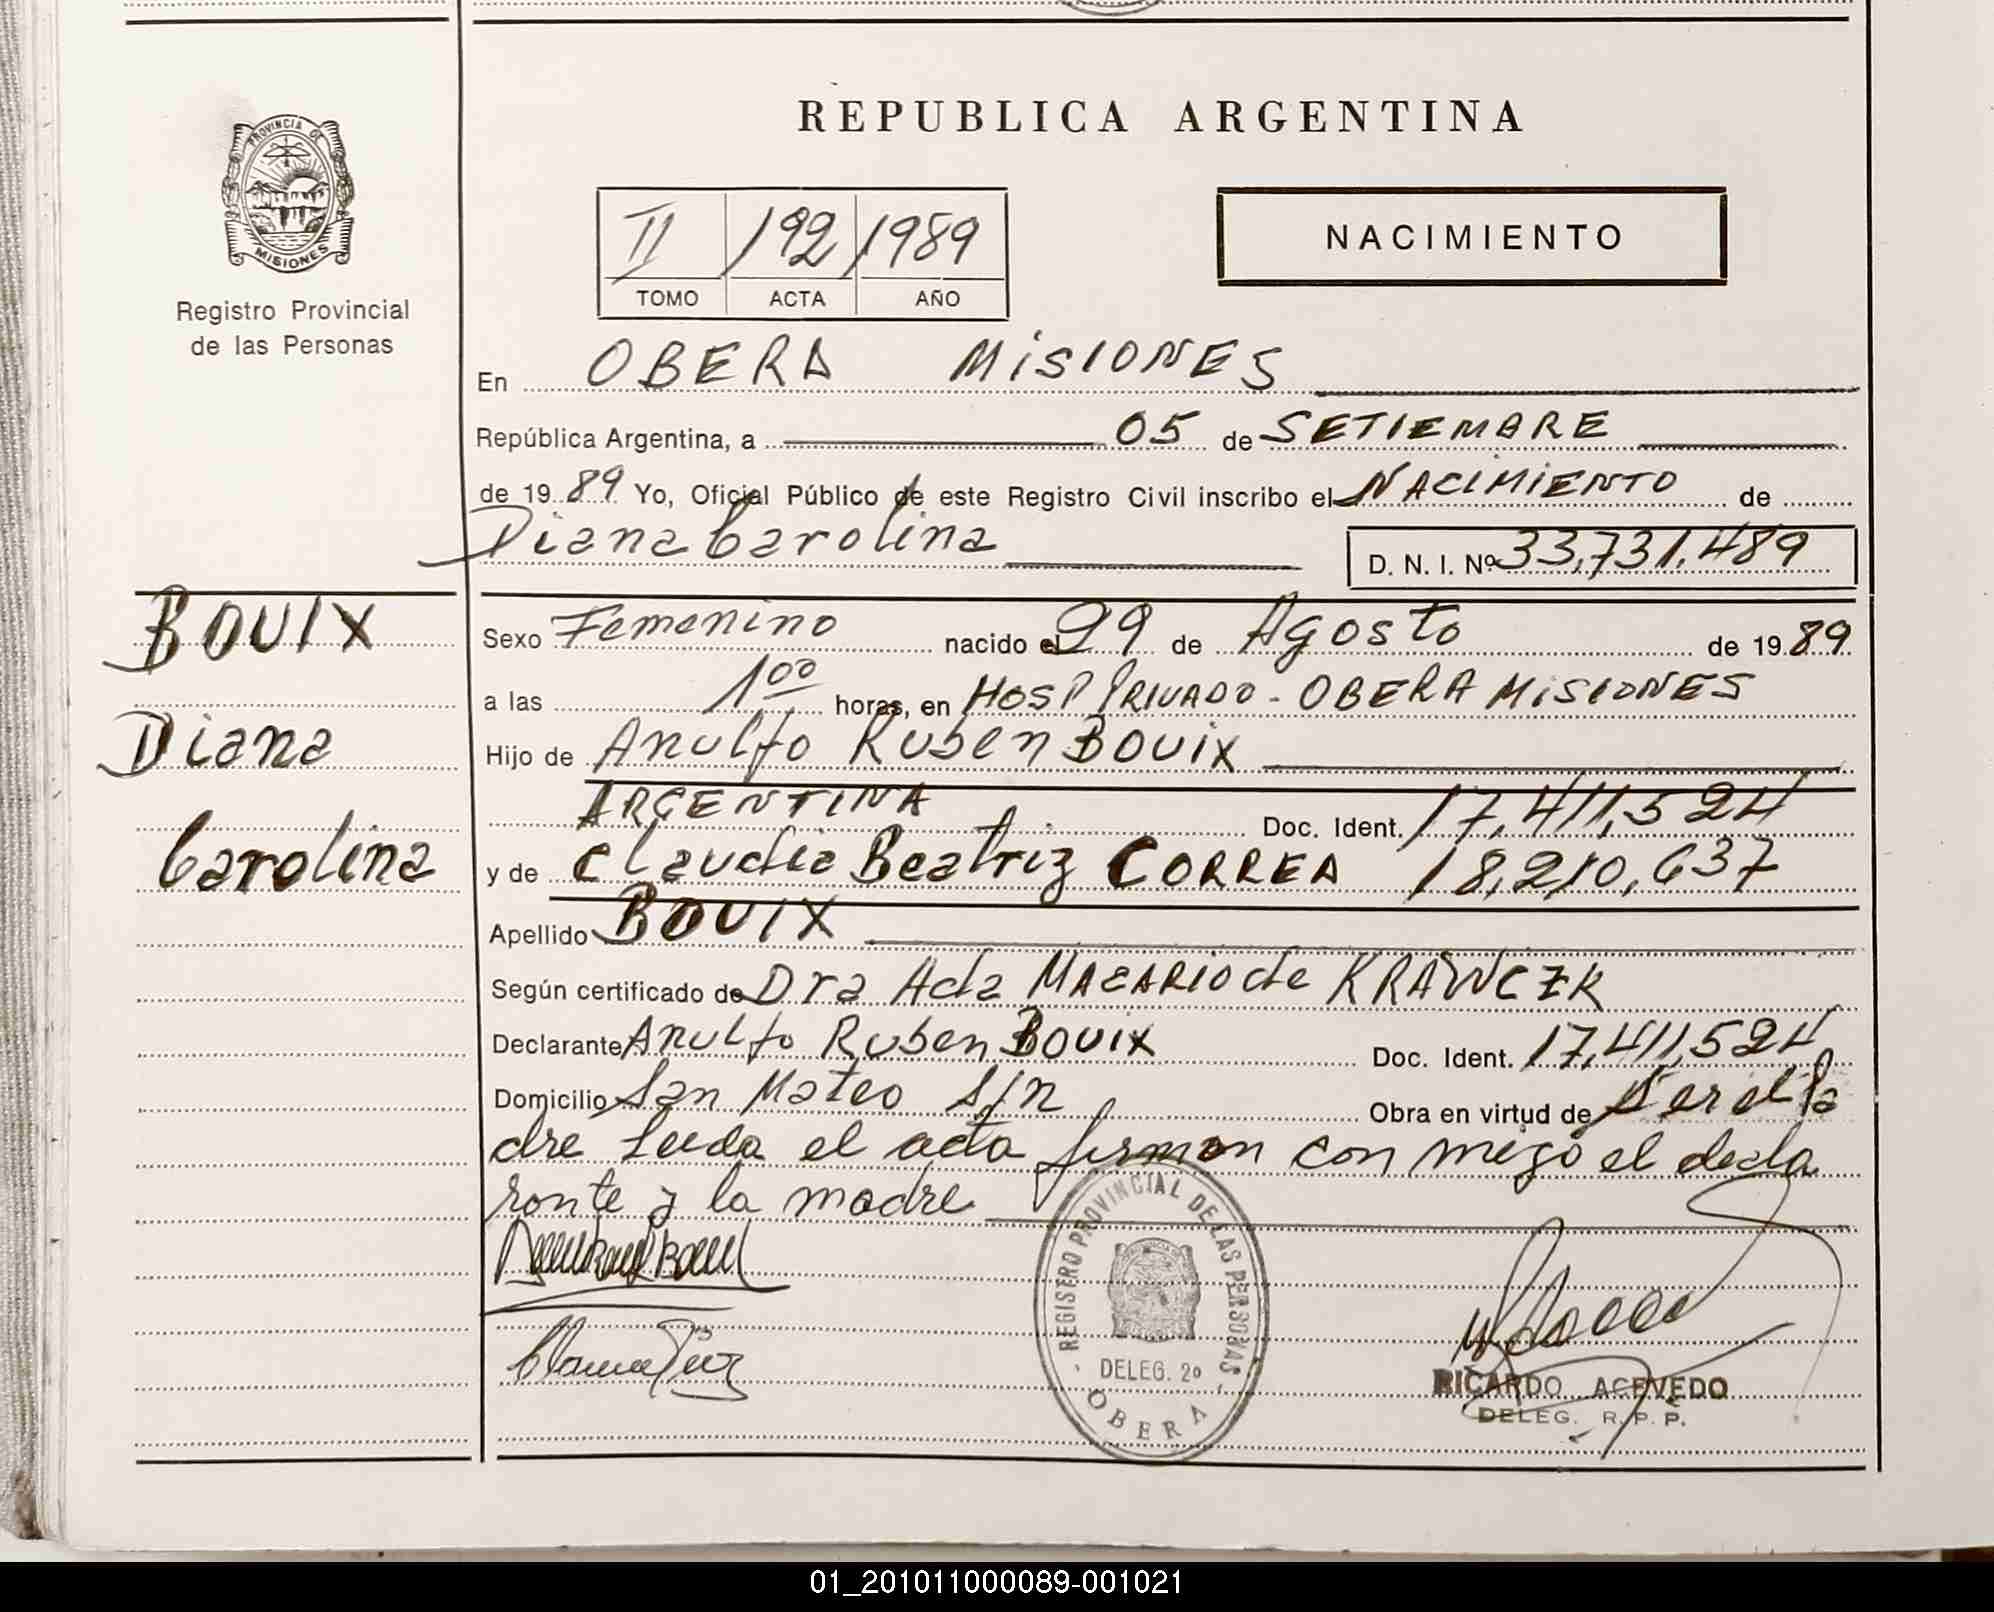 REPUBLICA ARGENTINA
PROVINCIA DE
MISIONES
Registro Provincial
de las Personas
II 192 1989
TOMO ACTA AÑO
NACIMIENTO
En OBERA MISIONES
República Argentina, a 05 de SETIEMBRE
de 1989 Yo, Oficial Público de este Registro Civil inscribo el NACIMIENTO de
Diana Carolina D. N. I. Nº 33,731,489
BOUIX
Diana
Carolina
Sexo Femenino nacido el 29 de Agosto de 1989
a las 1 00 horas, en HOSP PRIVADO - OBERA MISIONES
Hijo de Arnulfo Ruben BOUIX
ARGENTINA Doc. Ident. 17,411,524
y de Claudia Beatriz CORREA 18,210,637
Apellido BOUIX
Según certificado de Dra Ada MACARIO de KRAWCZK
Declarante Arnulfo Ruben BOUIX Doc. Ident. 17,411,524
Domicilio San Mateo S/n Obra en virtud de ser el Pa
dre Leida el acta firman con migo el decla
rante y la madre
REGISTRO PROVINCIAL DE LAS PERSONAS
DELEG. 2º
OBERA
RICARDO ACEVEDO
DELEG. R. P. P.
01_201011000089-001021